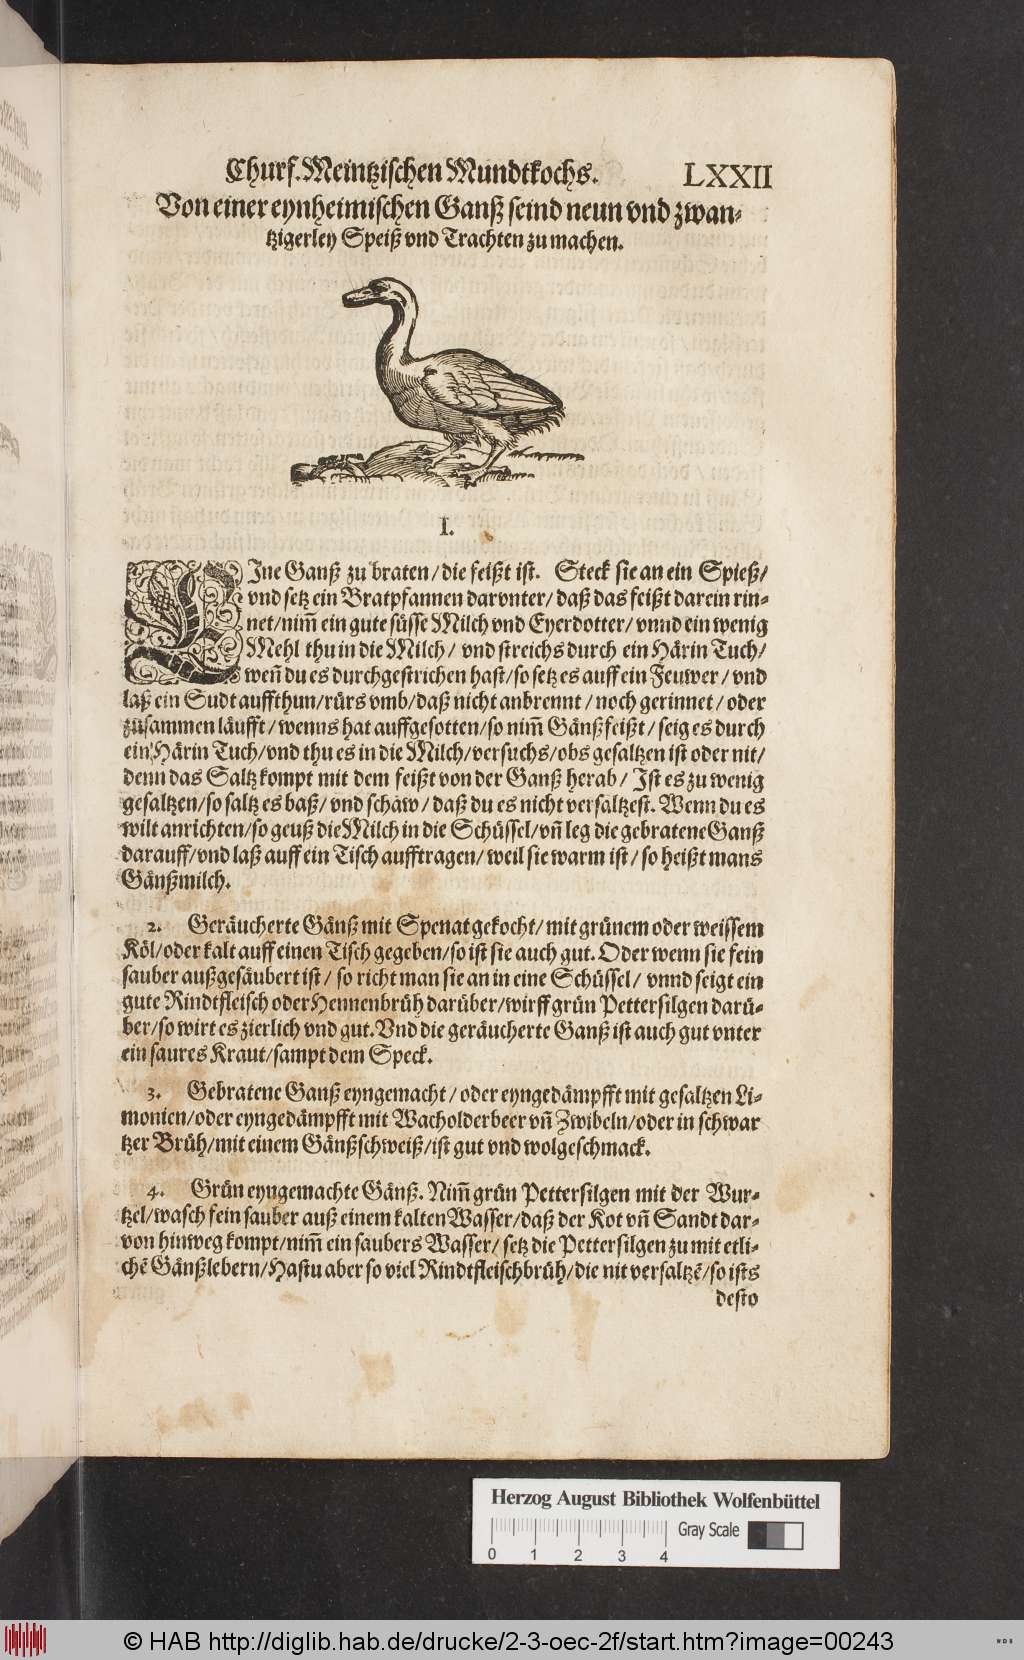 Churf. Meintzischen Mundtkochs. LXXII
Von einer eynheimischen Ganß seind neun vnd zwan-
tzigerley Speiß vnd Trachten zu machen.
I.
EIne Ganß zu braten / die feißt ist. Steck sie an ein Spieß /
vnd setz ein Bratpfannen darvnter / daß das feißt darein rin-
net / nim̃ ein gute süsse Milch vnd Eyerdotter / vnnd ein wenig
Mehl thu in die Milch / vnd streichs durch ein Härin Tuch /
weñ du es durchgestrichen hast / so setz es auff ein Feuwer / vnd
laß ein Sudt auffthun / rürs vmb / daß nicht anbrennt / noch gerinnet / oder
zusammen läufft / wenns hat auffgesotten / so nim̃ Gänßfeißt / seig es durch
ein Härin Tuch / vnd thu es in die Milch / versuchs / obs gesaltzen ist oder nit /
denn das Saltz kompt mit dem feißt von der Ganß herab / Ist es zu wenig
gesaltzen / so saltz es baß / vnd schaw / daß du es nicht versaltzest. Wenn du es
wilt anrichten / so geuß die Milch in die Schüssel / vñ leg die gebratene Ganß
darauff / vnd laß auff ein Tisch aufftragen / weil sie warm ist / so heißt mans
Gänßmilch.
2. Geräucherte Gänß mit Spenat gekocht / mit grünem oder weissem
Köl / oder kalt auff einen Tisch gegeben / so ist sie auch gut. Oder wenn sie fein
sauber außgesäubert ist / so richt man sie an in eine Schüssel / vnnd seigt ein
gute Rindtfleisch oder Hennenbrüh darüber / wirff grün Pettersilgen darü-
ber / so wirt es zierlich vnd gut. Vnd die geräucherte Ganß ist auch gut vnter
ein saures Kraut / sampt dem Speck.
3. Gebratene Ganß eyngemacht / oder eyngedämpfft mit gesaltzen Li-
monien / oder eyngedämpfft mit Wacholderbeer vñ Zwibeln / oder in schwar
tzer Brüh / mit einem Gänßschweiß / ist gut vnd wolgeschmack.
4. Grün eyngemachte Gänß. Nim̃ grün Pettersilgen mit der Wur-
tzel / wasch fein sauber auß einem kalten Wasser / daß der Kot vñ Sandt dar-
von hinweg kompt / nim̃ ein saubers Wasser / setz die Pettersilgen zu mit etli-
chẽ Gänßlebern / Hastu aber so viel Rindtfleischbrüh / die nit versaltzẽ / so ists
desto
Herzog August Bibliothek Wolfenbüttel
Gray Scale
0 1 2 3 4
© HAB http://diglib.hab.de/drucke/2-3-oec-2f/start.htm?image=00243